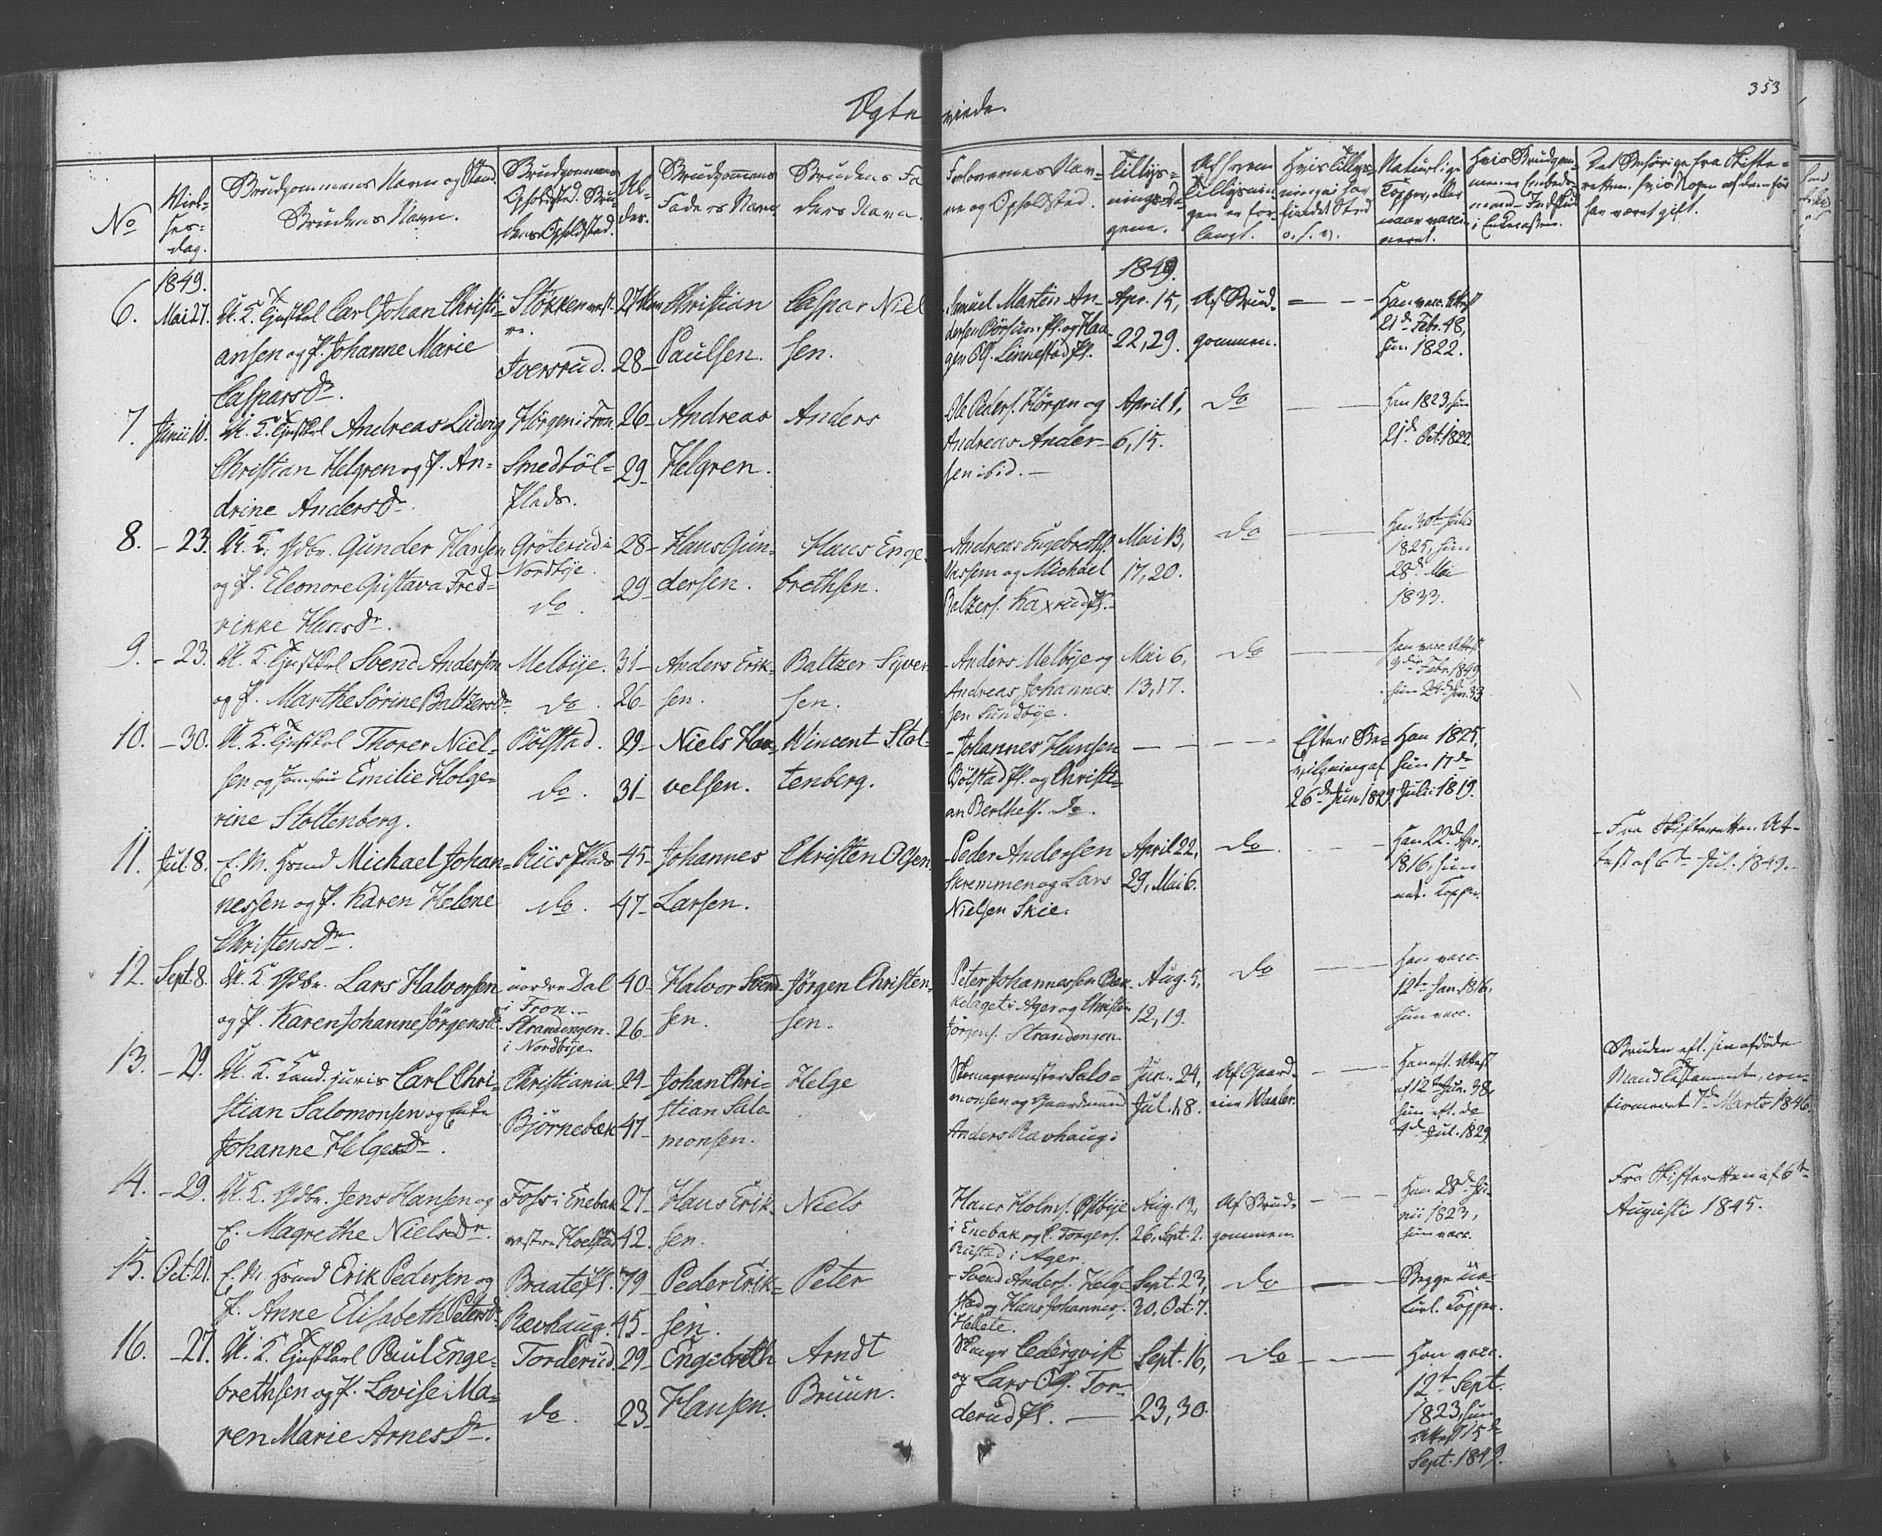 353
Ægte viede.
No
Viel-
ses-
dag.
Brudgommens Navn og Stand.
Brudens Navn.
Brudgommens
Opholdsted. Bru-
dens Opholdsted.
Al-
der.
Brudgommens
Faders Navn.
Brudens Fa-
ders Navn.
Forlovernes Nav-
ne og Opholdsted.
Tillys-
nings-Da-
gene.
Af hvem
Tillysnin-
gen er for-
langt.
1849.
6. Mai 27. U. K. Carl Johan Christi-
ansen og P. Johanne Marie
Caspars Dr.
Stokkenvest-
re.
Iversrud.
27
28
Christian
Paulsen.
Caspar Niel-
sen.
Samuel Martin An-
dersen Børsum Pl. og Haa-
gen Ols. Linnestad Pl.
1849.
Apr. 15,
22, 29.
Af Brud-
gommen.
Han vacc. Attest
21de Febr. 48,
hun 1822.
7. Junii 10. U. K. Andreas Ludvig
Christian Helgren og P. An-
drine Anders Dr.
Hørgen i Fron
Smedbøl-
Plads.
26
29
Andreas
Helgren.
Anders
Ole Peders. Hørgen og
Andreas Ander-
sen ibid.
April 1,
6, 15.
Do
Han 1823, hun
21de Oct. 1822
8. - 23. U. K. Gunder Hansen
og P. Eleonore Gustava Fred-
rikke Hans Dr.
Grøterud i
Nordbye.
do.
28
29
Hans Gun-
dersen.
Hans Enge-
brethsen.
Andreas Engebreths.
Vassum og Michael
Baltzers. Kaxrud Pl.
Mai 13,
17, 20.
do
1825, hun
28de Mai
1833.
9. - 23. U. K. Svend Andersen
og P. Marthe Sørine Baltzers Dr.
Melbye.
do.
31
26
Anders Erik-
sen.
Baltzer Syver-
sen.
Anders Melbye og
Andreas Johannes-
sen Sundbye.
Mai 6,
13, 17.
do
Han vacc. Attest
9de Febr. 1849
10. - 30. U. K. Thorer Niel-
sen og Jomfru Emilie Holge-
rine Stoltenberg.
Bølstad.
do.
29
31
Niels Hav-
velsen.
Wincent Stol-
tenberg.
Johannes Hansen
Bølstad Pl. og Christi-
an Berthels. do.
Efter Be-
vilgning af
26de Jun. 1849
Han 1825,
hun 17de
Juli 1819.
11. Jul. 8. E. M. Michael Johan-
nessen og P. Karen Helene
Christens Dr.
Riis Plads
do.
45
47
Johannes
Larsen.
Christen Olsen
Peder Andersen
Skremmen og Lars
Nielsen Skie.
April 22,
29, Mai 6.
do.
Han 22de Apr.
1816, hun
nat. Kopper.
Fra Skifteretten At-
test af 6te Jul. 1849.
12. Sept. 8. U. K. Lars Halvorsen
og P. Karen Johanne Jørgens Dr.
nordre Dal
i Fron.
Strandengen
i Nordbye
40
26
Halvor Svend-
sen.
Jørgen Christen-
sen.
Peter Johannessen
i Ager og Christen
Jørgens. Strandengen
Aug. 5,
12, 19.
do
Han vacc.
12te Jan. 1816.
hun vacc.
13. - 29. U. K. Cand. juris Carl Chri-
stian Salomonsen og Enke
Johanne Helges Dr.
Christiania
Bjørnebæk
29
47
Johan Chri-
stian Salo-
monsen.
Helge
Skomagermester Salo-
monsen og Gaardmand
Anders Ravhaug.
Jun. 24,
Jul. 1, 8.
Af Gaard-
eier Waaler.
Han eft. Attest
af 12te Jun. 38,
hun eft. do
4de Jul. 1829
Bruden eft. sin afdøde
Mand Testamente, con-
firmeret 7de Marts 1846.
14. - 29. U. K. Jens Hansen og
E. Magrethe Niels Dr.
Foss i Enebak
vestre Hoelstad
27
42
Hans Erik-
sen.
Niels
Hans Holms. Østbye
i Enebak og E. Torgers.
Rustad i Ager.
Aug. 19,
26, Sept. 2.
Af Brud-
gommen.
Han 28de Ju-
nii 1823,
hun vacc.
Fra Skifteretten af 6te
Augusti 1845.
15. Oct. 21. E. M. Erik Pedersen og
P. Anne Elisabeth Peters Dr.
Braate Pl.
Ravhaug.
79
45
Peder Erik-
sen.
Peter
Svend Anders. Helge-
stad og Hans Johannes.
Hellete.
Sept. 23,
30. Oct. 7.
do
Begge na-
turl. Kopper.
16. - 27. U. K. Paul Enge-
brethsen og P. Lovise Ma-
ren Marie Arnes Dr.
Torderud
do.
29
23
Engebreth
Hansen.
Arndt
Bruun.
Cederqvist
og Lars Ols. Tor-
derud Pl.
Sept. 16,
23, 30.
do
Han vacc.
12te Sept.
1823, hun
Attest 15de
Sept. 1849.